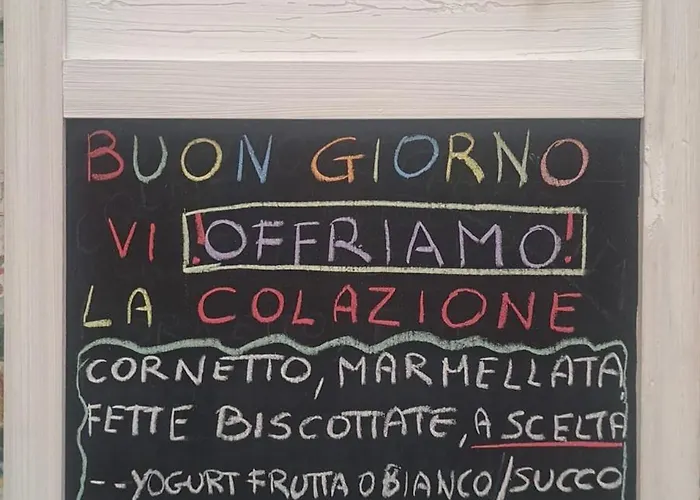 BUON GIORNO
VI !OFFRIAMO!
LA COLAZIONE
CORNETTO, MARMELLATA,
FETTE BISCOTTATE, A SCELTA
--YOGURT FRUTTA O BIANCO/SUCCO